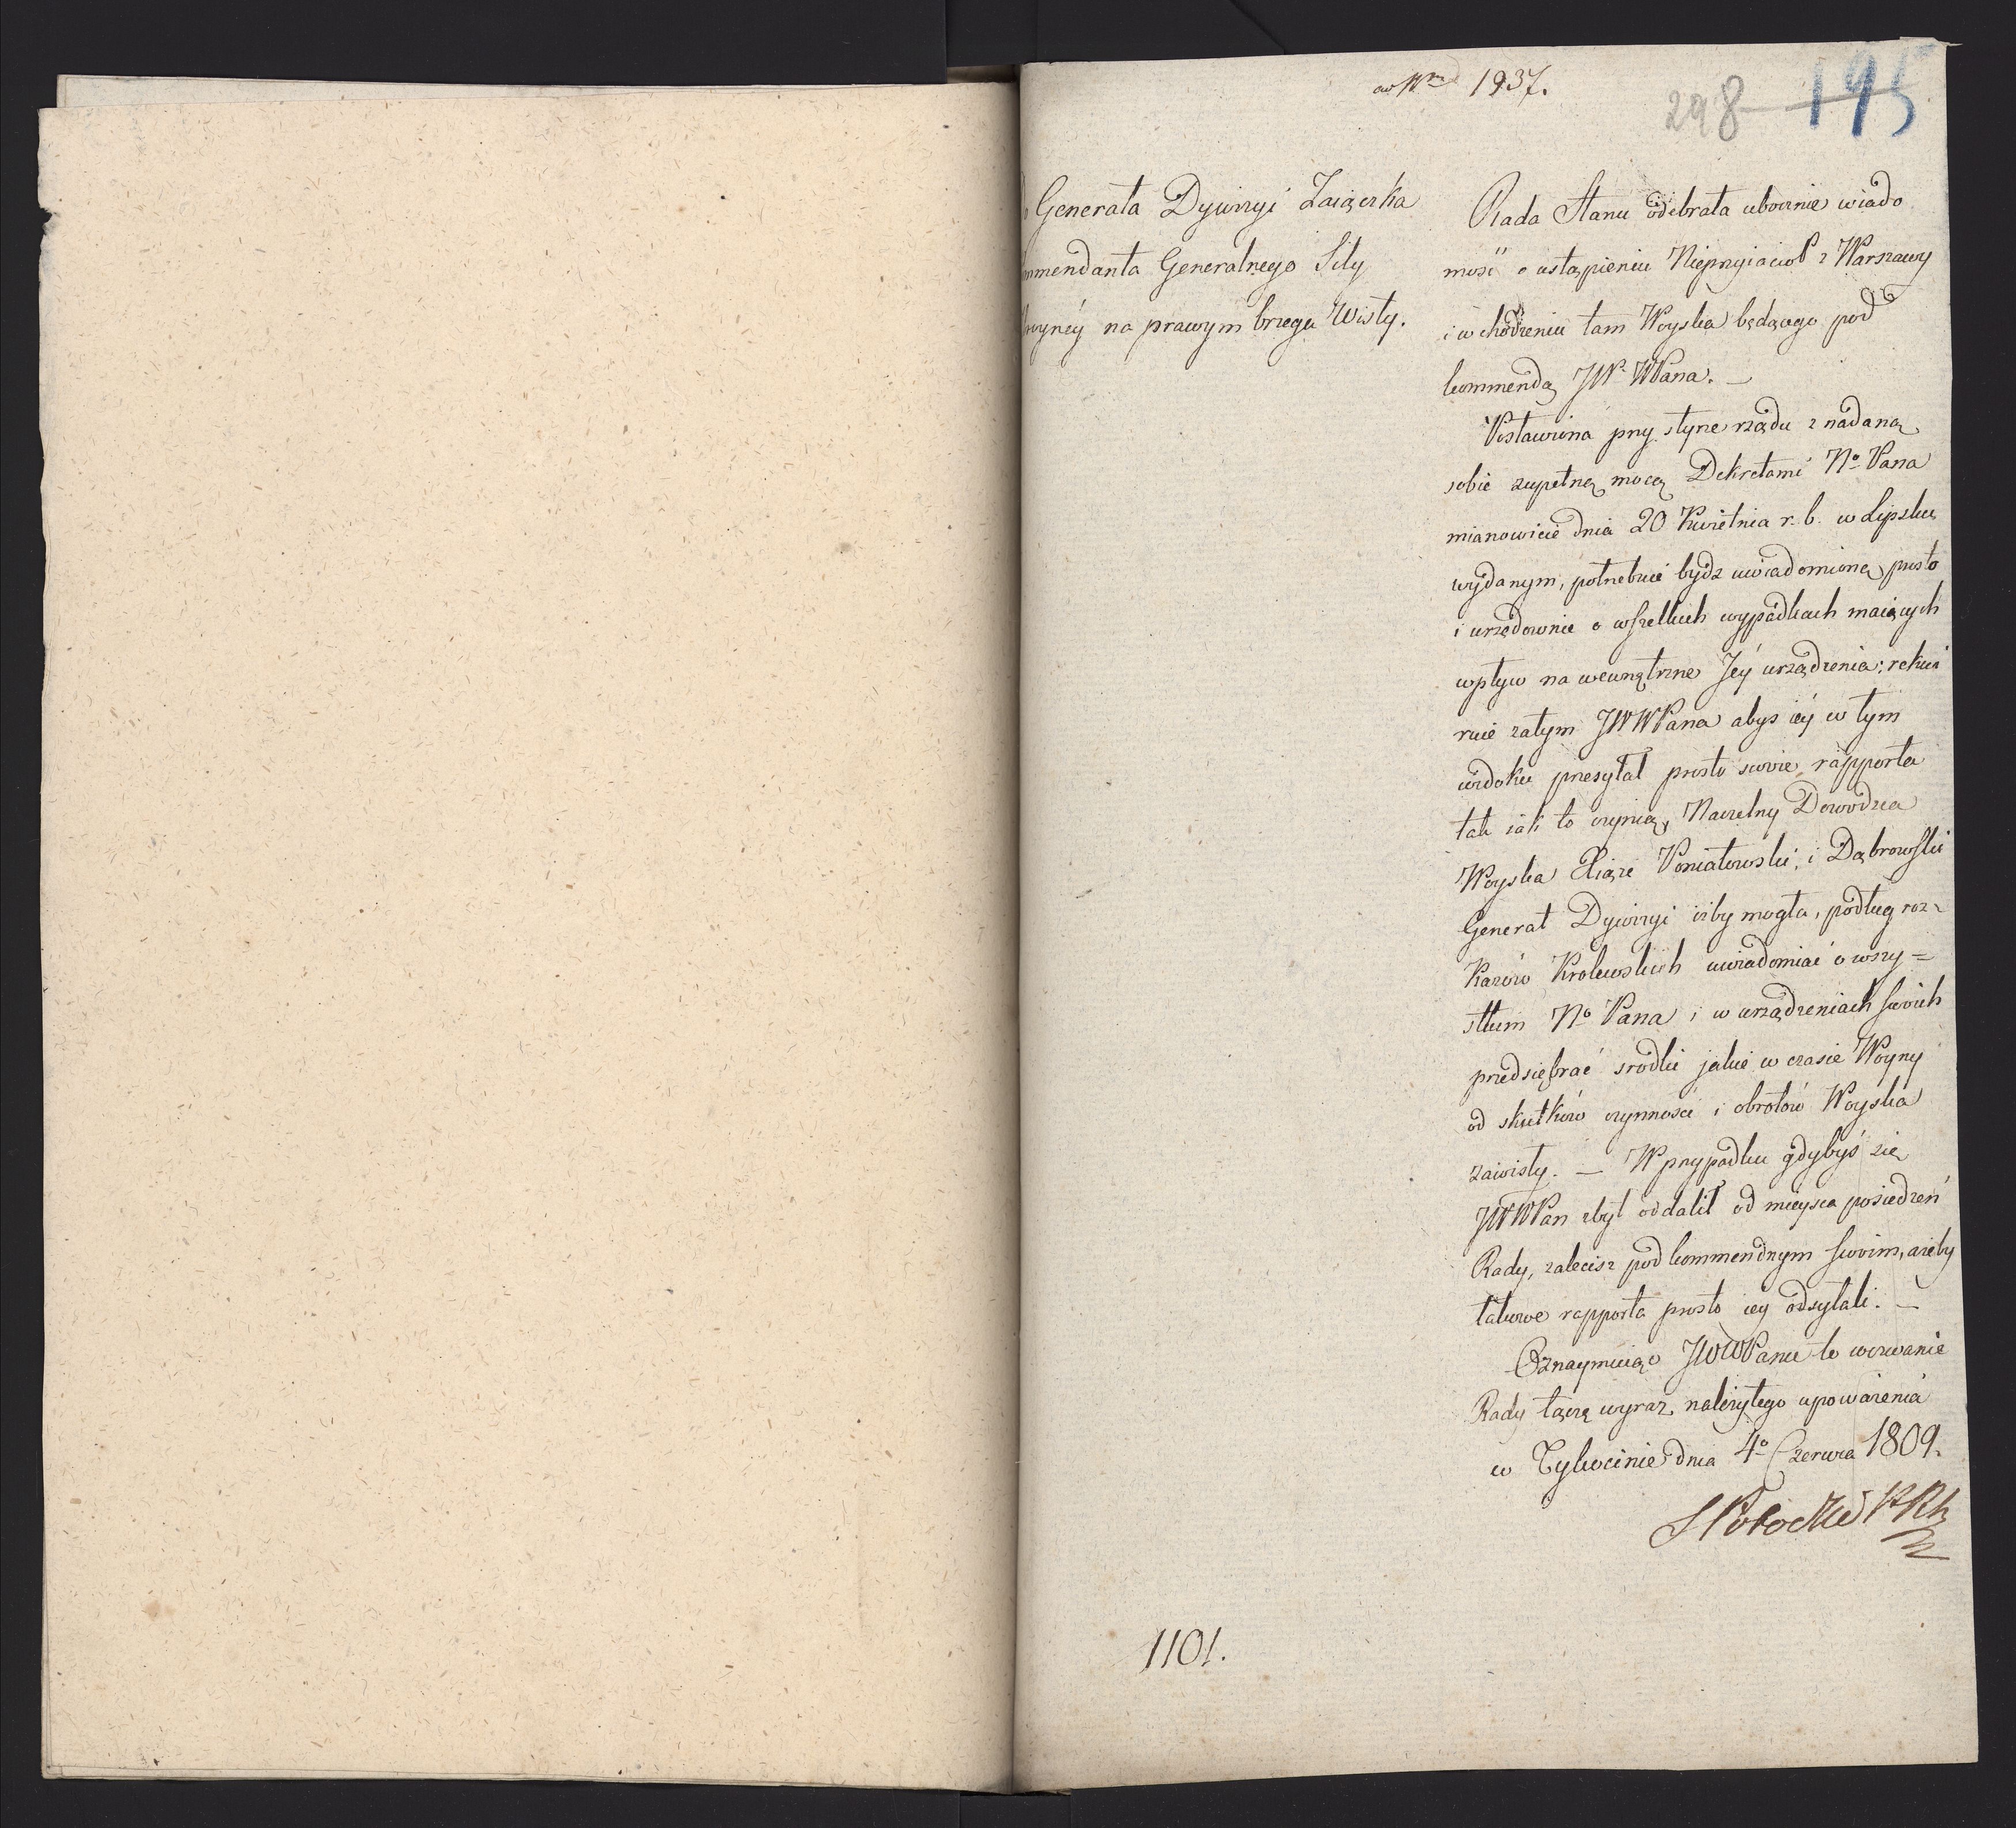 ad Nrm 1937.
298 195
Generała Dywizyi Zaiączka
mmendanta Generalnego Siły
royney na prawym brzegu Wisły.
Rada Stanu odebrała ubocznie wiado
mość o ustąpieniu Nieprzyiaciół z Warszawy
i wchodzeniu tam Woyska będącego pod
kommendą JW WPana. —
Postawiona przy styrze rządu z nadaną
sobie zupełną mocą Dekretami No Pana
mianowicie dnia 20 Kwietnia r. b. w Lipsku
wydanym, potrzebuie bydz uwiadomioną prosto
i urzędownie o wszelkich wypadkach maiących
wpływ na wewnętrzne Jey urządzenia;
zatym JWWPana abyś iey w tym
widoku przesyłał prosto swoie rapporta
tak iak to czynią, Naczelny Dowodzca
Woyska Xiąże Poniatowski, i Dąbrowski
Generał Dywizyi iżby mogła, podług roz-
kazów Krolewskich uwiadomiać o wszy=
stkim No Pana i w urządzeniach swoich
przedsiębrać srodki jakie w czasie Woyny
od skutków czynności i obrotów Woyska
zawisły. — W przypadku gdybyś się
JWWPan zbyt oddalił od mieysca posiedzeń
Rady, zalecisz podkommendnym swoim, ażeby
takowe rapporta prosto iey odsyłali. —
Oznaymuiąc JWWPanu to wezwanie
Rady łączę wyraz należytego upoważenia
w Tykocinie dnia 4o Czerwca 1809.
S Potocki PR
1101.